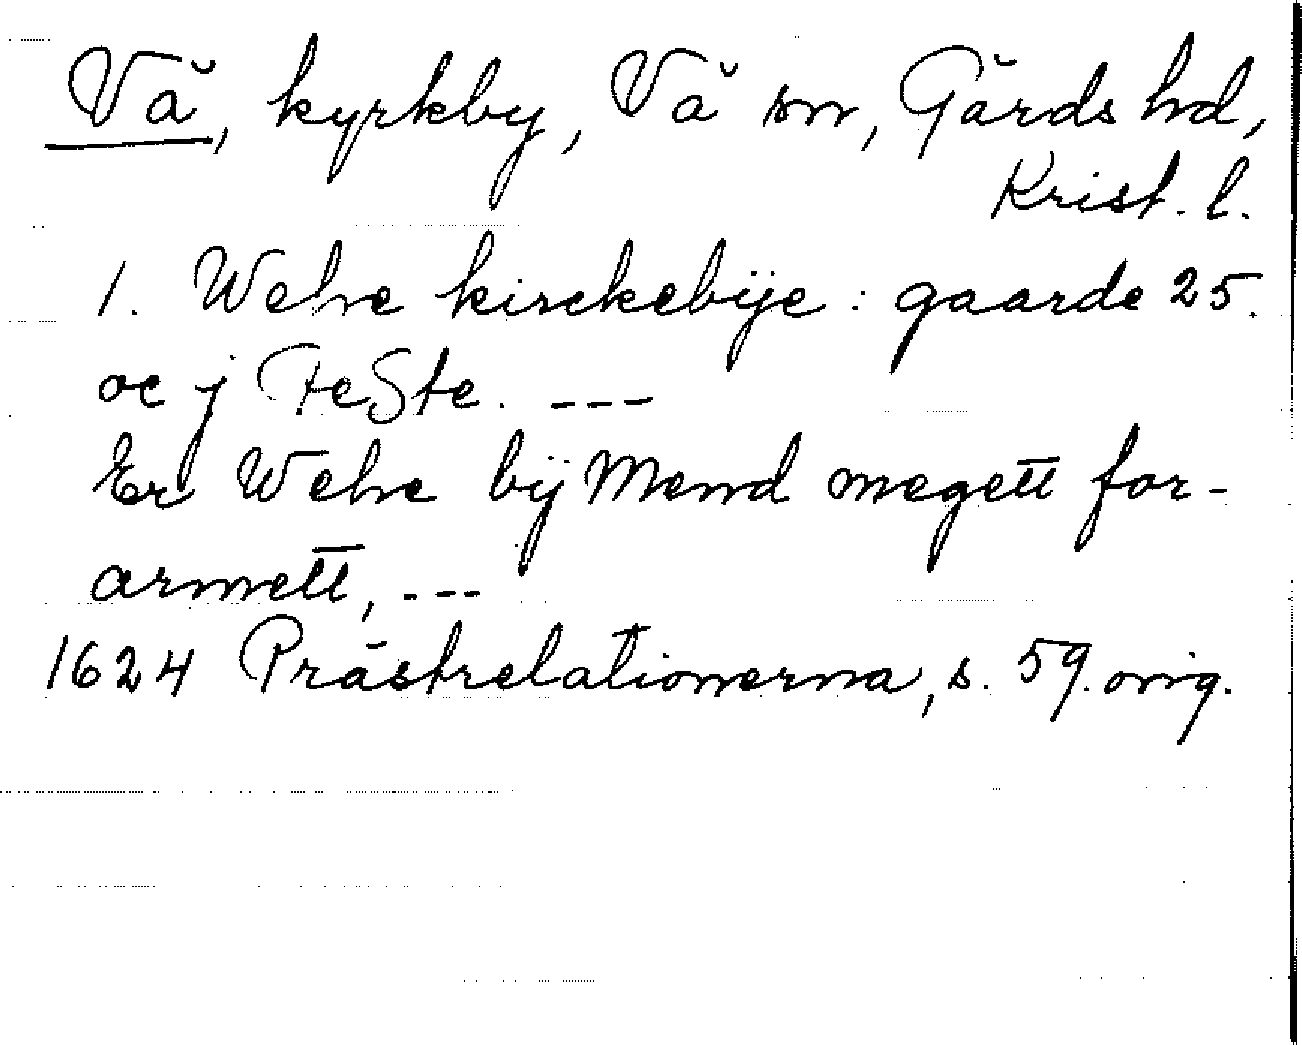 Vå, kyrkby, Vå sn, Gärds hd,
Krist. l.
1. Wehe kirckebÿe : gaarde 25.
oc j FeSte. ---
Er Wehe bÿ Mend megett for-
armett, ---
1624 Prästrelationerna, s. 59. orig.